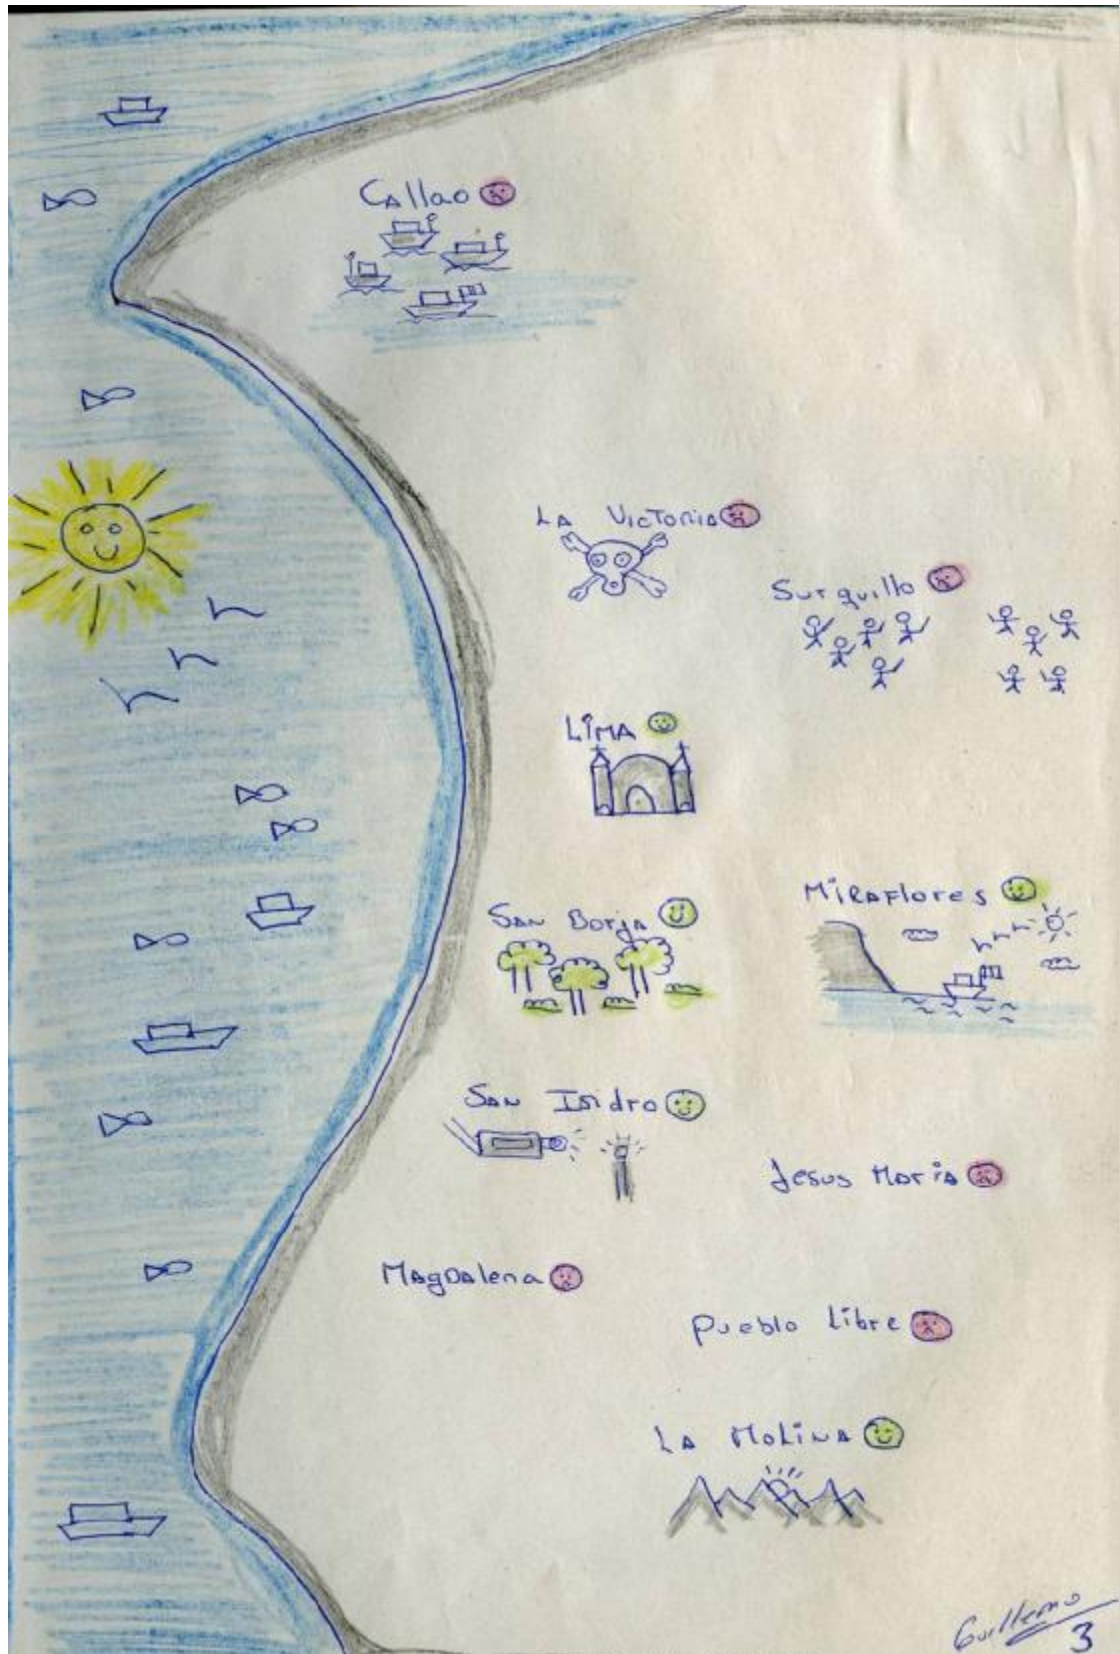 Callao
La Victoria
Surquillo
Lima
San Borja
Miraflores
San Isidro
Jesus Maria
Magdalena
Pueblo Libre
La Molina
Guillermo
3